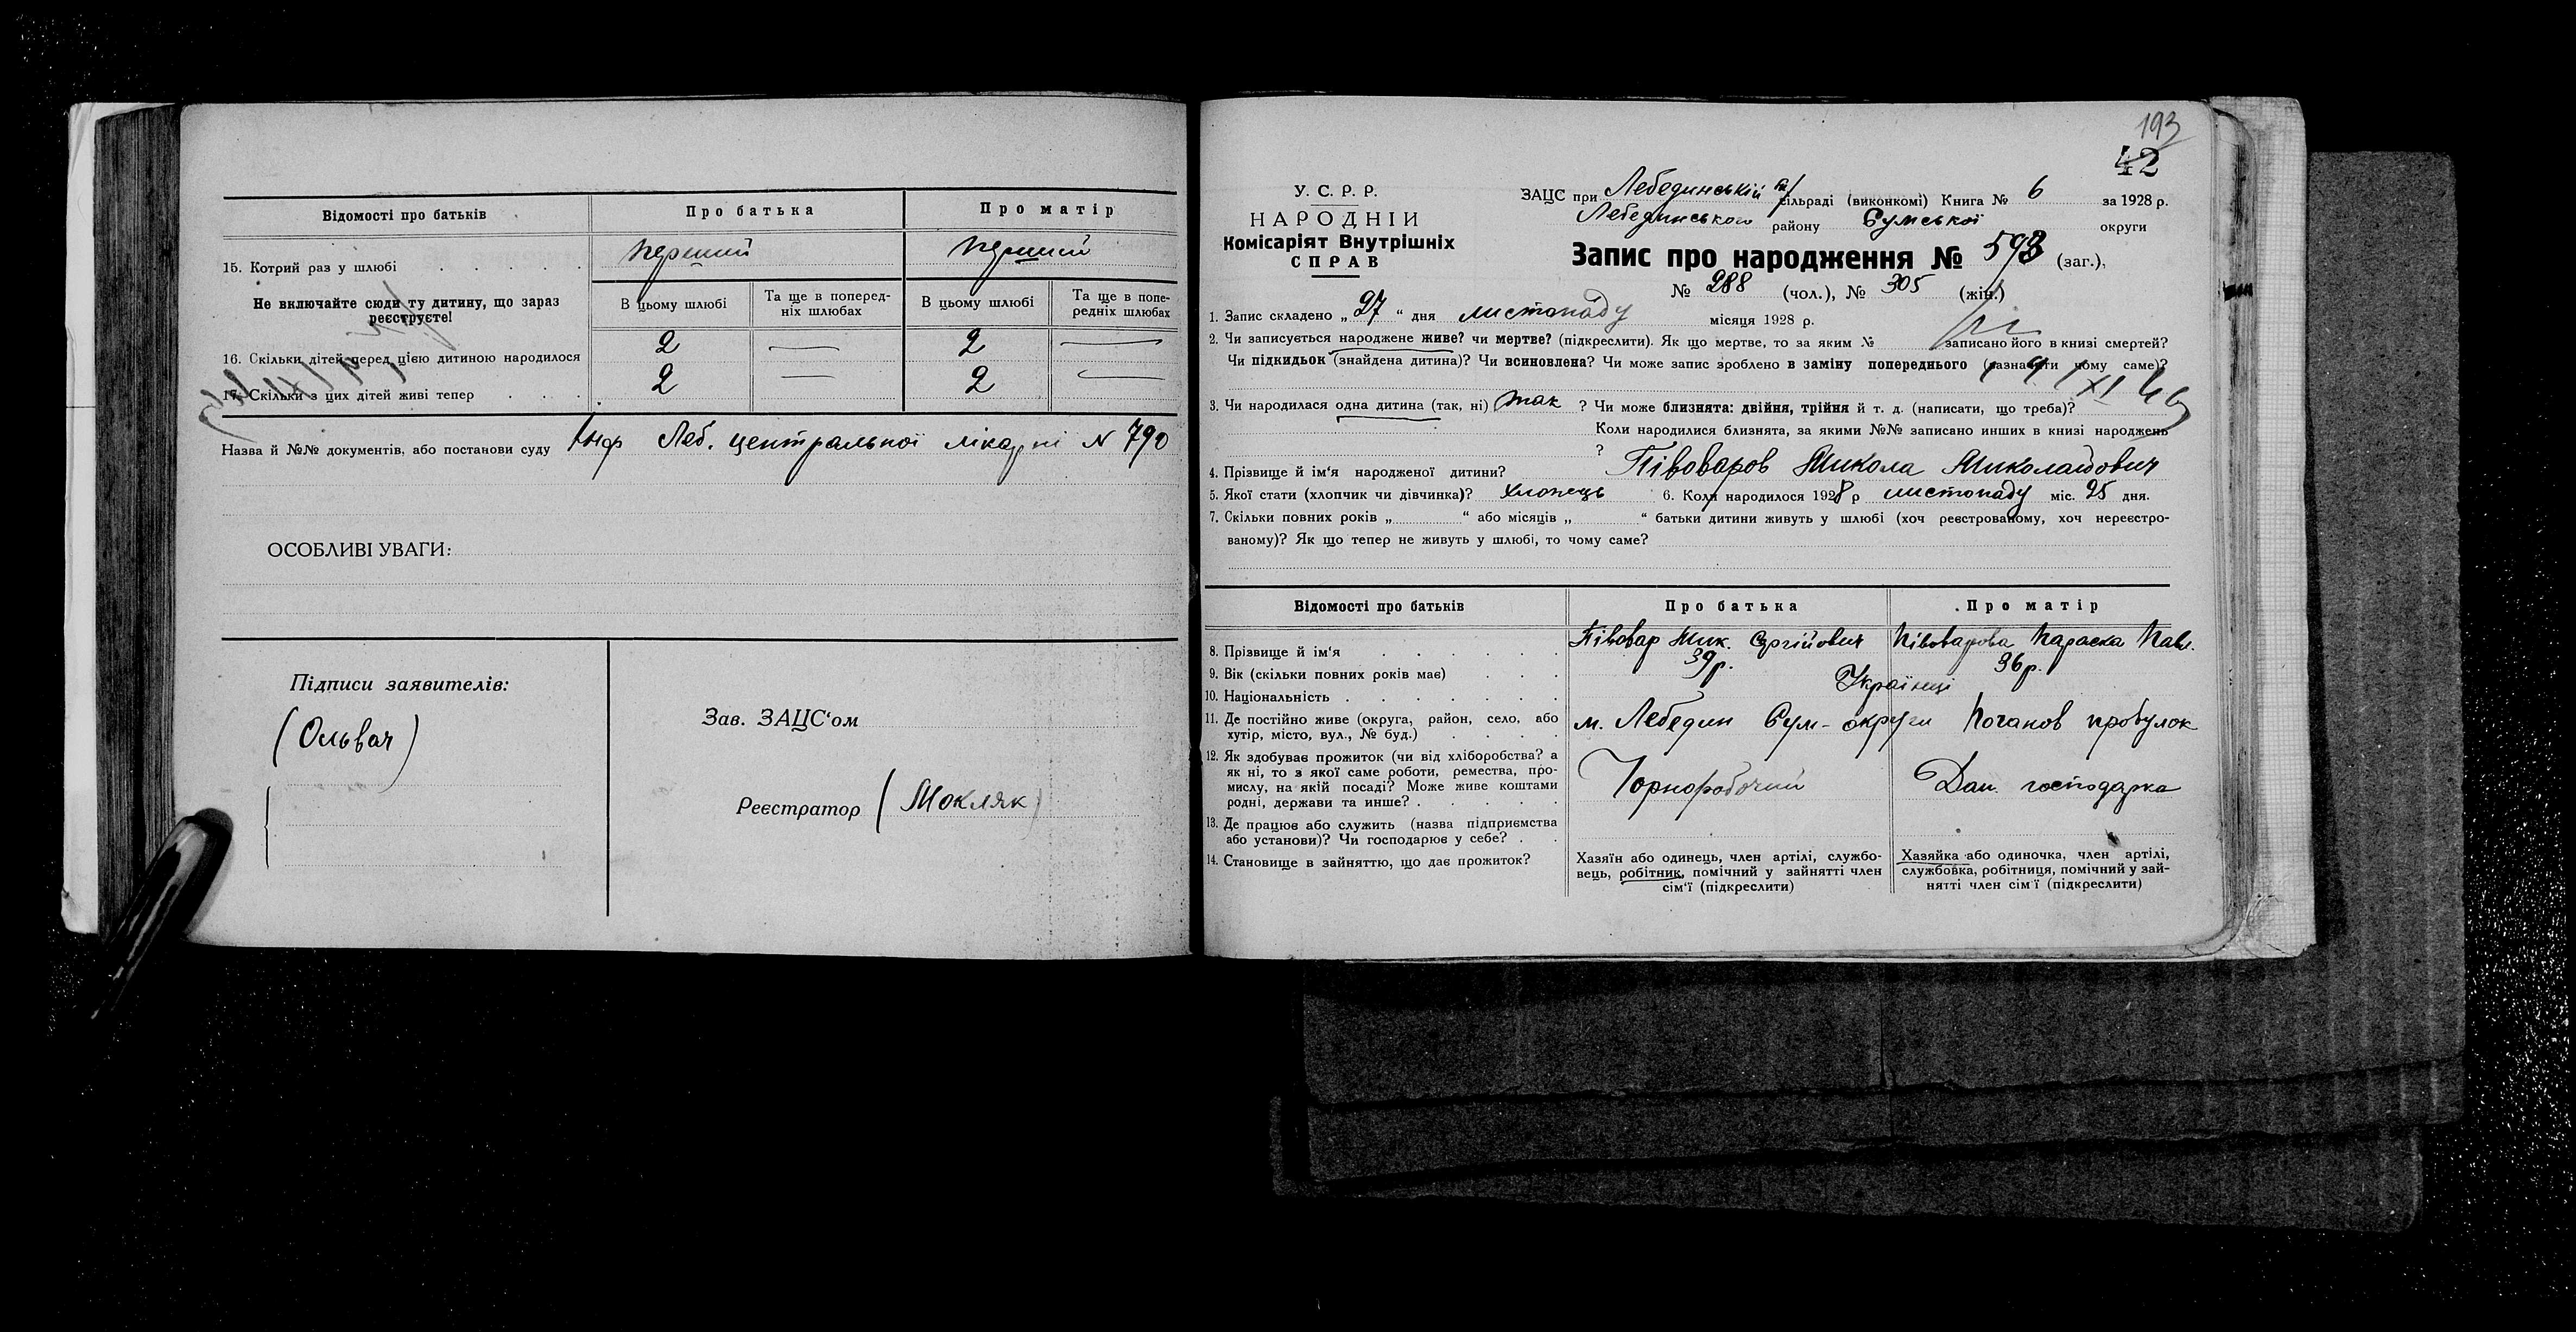 Відомості про батьків
Про батька
Про матір
15. Котрий раз у шлюбі
перший
перший
Не включайте сюди ту дитину, що зараз реєструєте!
В цьому шлюбі
Та ще в поперед-
ніх шлюбах
В цьому шлюбі
Та ще в попе-
редніх шлюбах
16. Скільки дітей перед цією дитиною народилося
2 — 2 —
17. Скільки з цих дітей живі тепер
2 — 2 —
Назва й №№ документів, або постанови суду Леб. центральної лікарні N 790
ОСОБЛИВІ УВАГИ:
Підписи заявителів:
(Ольвач)
Зав. ЗАЦС‘ом
Реєстратор (Мокляк)
193
42
У. С. Р. Р.
НАРОДНІЙ
Комісаріят Внутрішніх
СПРАВ
ЗАЦС при Лебединській сільраді (виконкомі) Книга № 6 за 1928 р.
Лебединського району Сумської округи
Запис про народження № 593 (заг.),
№ 288 (чол.), № 305 (жін.)
1. Запис складено „ 27 “ дня листопаду місяця 1928 р.
2. Чи записується народжене живе? чи мертве? (підкреслити). Як що мертве, то за яким № записано його в книзі смертей?
Чи підкидьок (знайдена дитина)? Чи всиновлена? Чи може запис зроблено в заміну попереднього (зазначити чому саме)?
3. Чи народилася одна дитина (так, ні) так ? Чи може близнята: двійня, трійня й т. д. (написати, що треба)?
Коли народилися близнята, за якими №№ записано инших в книзі народжень
?
4. Прізвище й ім‘я народженої дитини? Півоваров Микола Миколайович
5. Якої стати (хлопчик чи дівчинка)? хлопець 6. Коли народилося 1928 р листопаду міс. 25 дня.
7. Скільки повних років „ “ або місяців „ “ батьки дитини живуть у шлюбі (хоч реєстрованому, хоч нереєстро-
ваному)? Як що тепер не живуть у шлюбі, то чому саме?
Відомості про батьків
Про батька
Про матір
8. Прізвище й ім‘я
Півовар Мик. Сергійович
Півоварова Параска Павл.
9. Вік (скільки повних років має)
39 р.
36 р.
10. Національність
Українці
11. Де постійно живе (округа, район, село, або
хутір, місто, вул., № буд.)
м. Лебедин Сум- округи провулок
12. Як здобуває прожиток (чи від хліборобства? а
як ні, то з якої саме роботи, ремества, про-
мислу, на якій посаді? Може живе коштами
родні, держави та инше?
Чорноробочий
Дом. господарка
13. Де працює або служить (назва підприємства
або установи)? Чи господарює у себе?
14. Становище в зайняттю, що дає прожиток?
Хазяїн або одинець, член артілі, службо-
вець, робітник, помічний у зайнятті член
сім‘ї (підкреслити)
Хазяйка або одиночка, член артілі,
службовка, робітниця, помічний у зай-
нятті член сім‘ї (підкреслити)